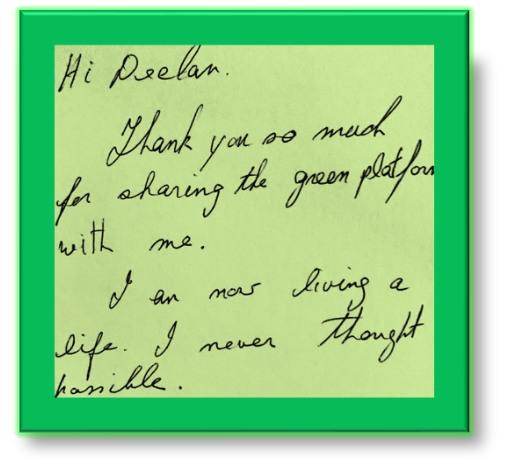 Hi Deelan.
Thank you so much
for sharing the green platform
with me.
I am now living a
life. I never thought
possible.